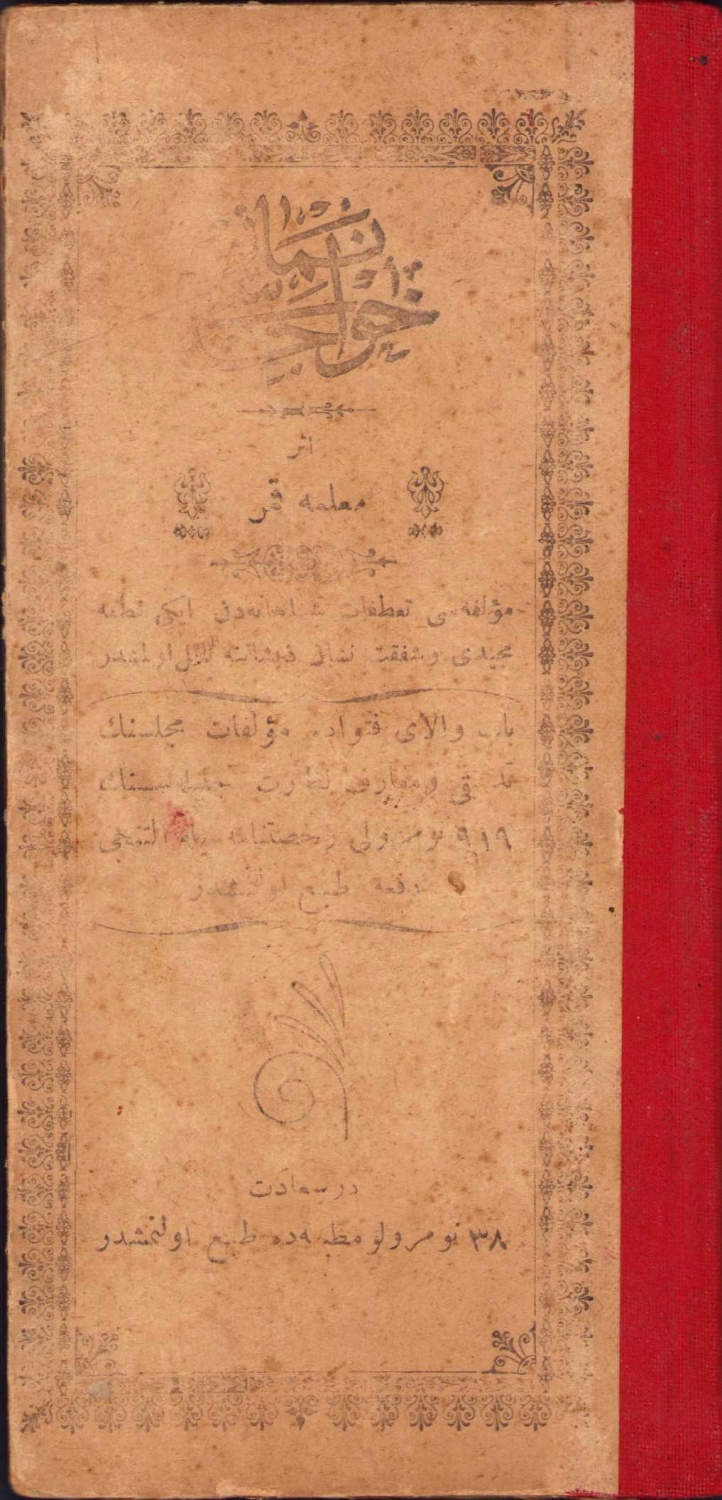 اثر
معلمه قمر
مؤلفه‌سی تعطفات شاهانه‌دن ایکی قطعه
مجیدی وشفقت نشان ذیشاننه نائل اولمشدر
باب والای فتواده مؤلفات مجلسنك
تدقیقی ومعارف نظارت جلیله‌سنك
٩١٩ نومرولی رخصتنامه‌سیله التنجی
دفعه طبع اولنمشدر
درسعادت
٣٨ نومرولو مطبعه‌ده طبع اولنمشدر